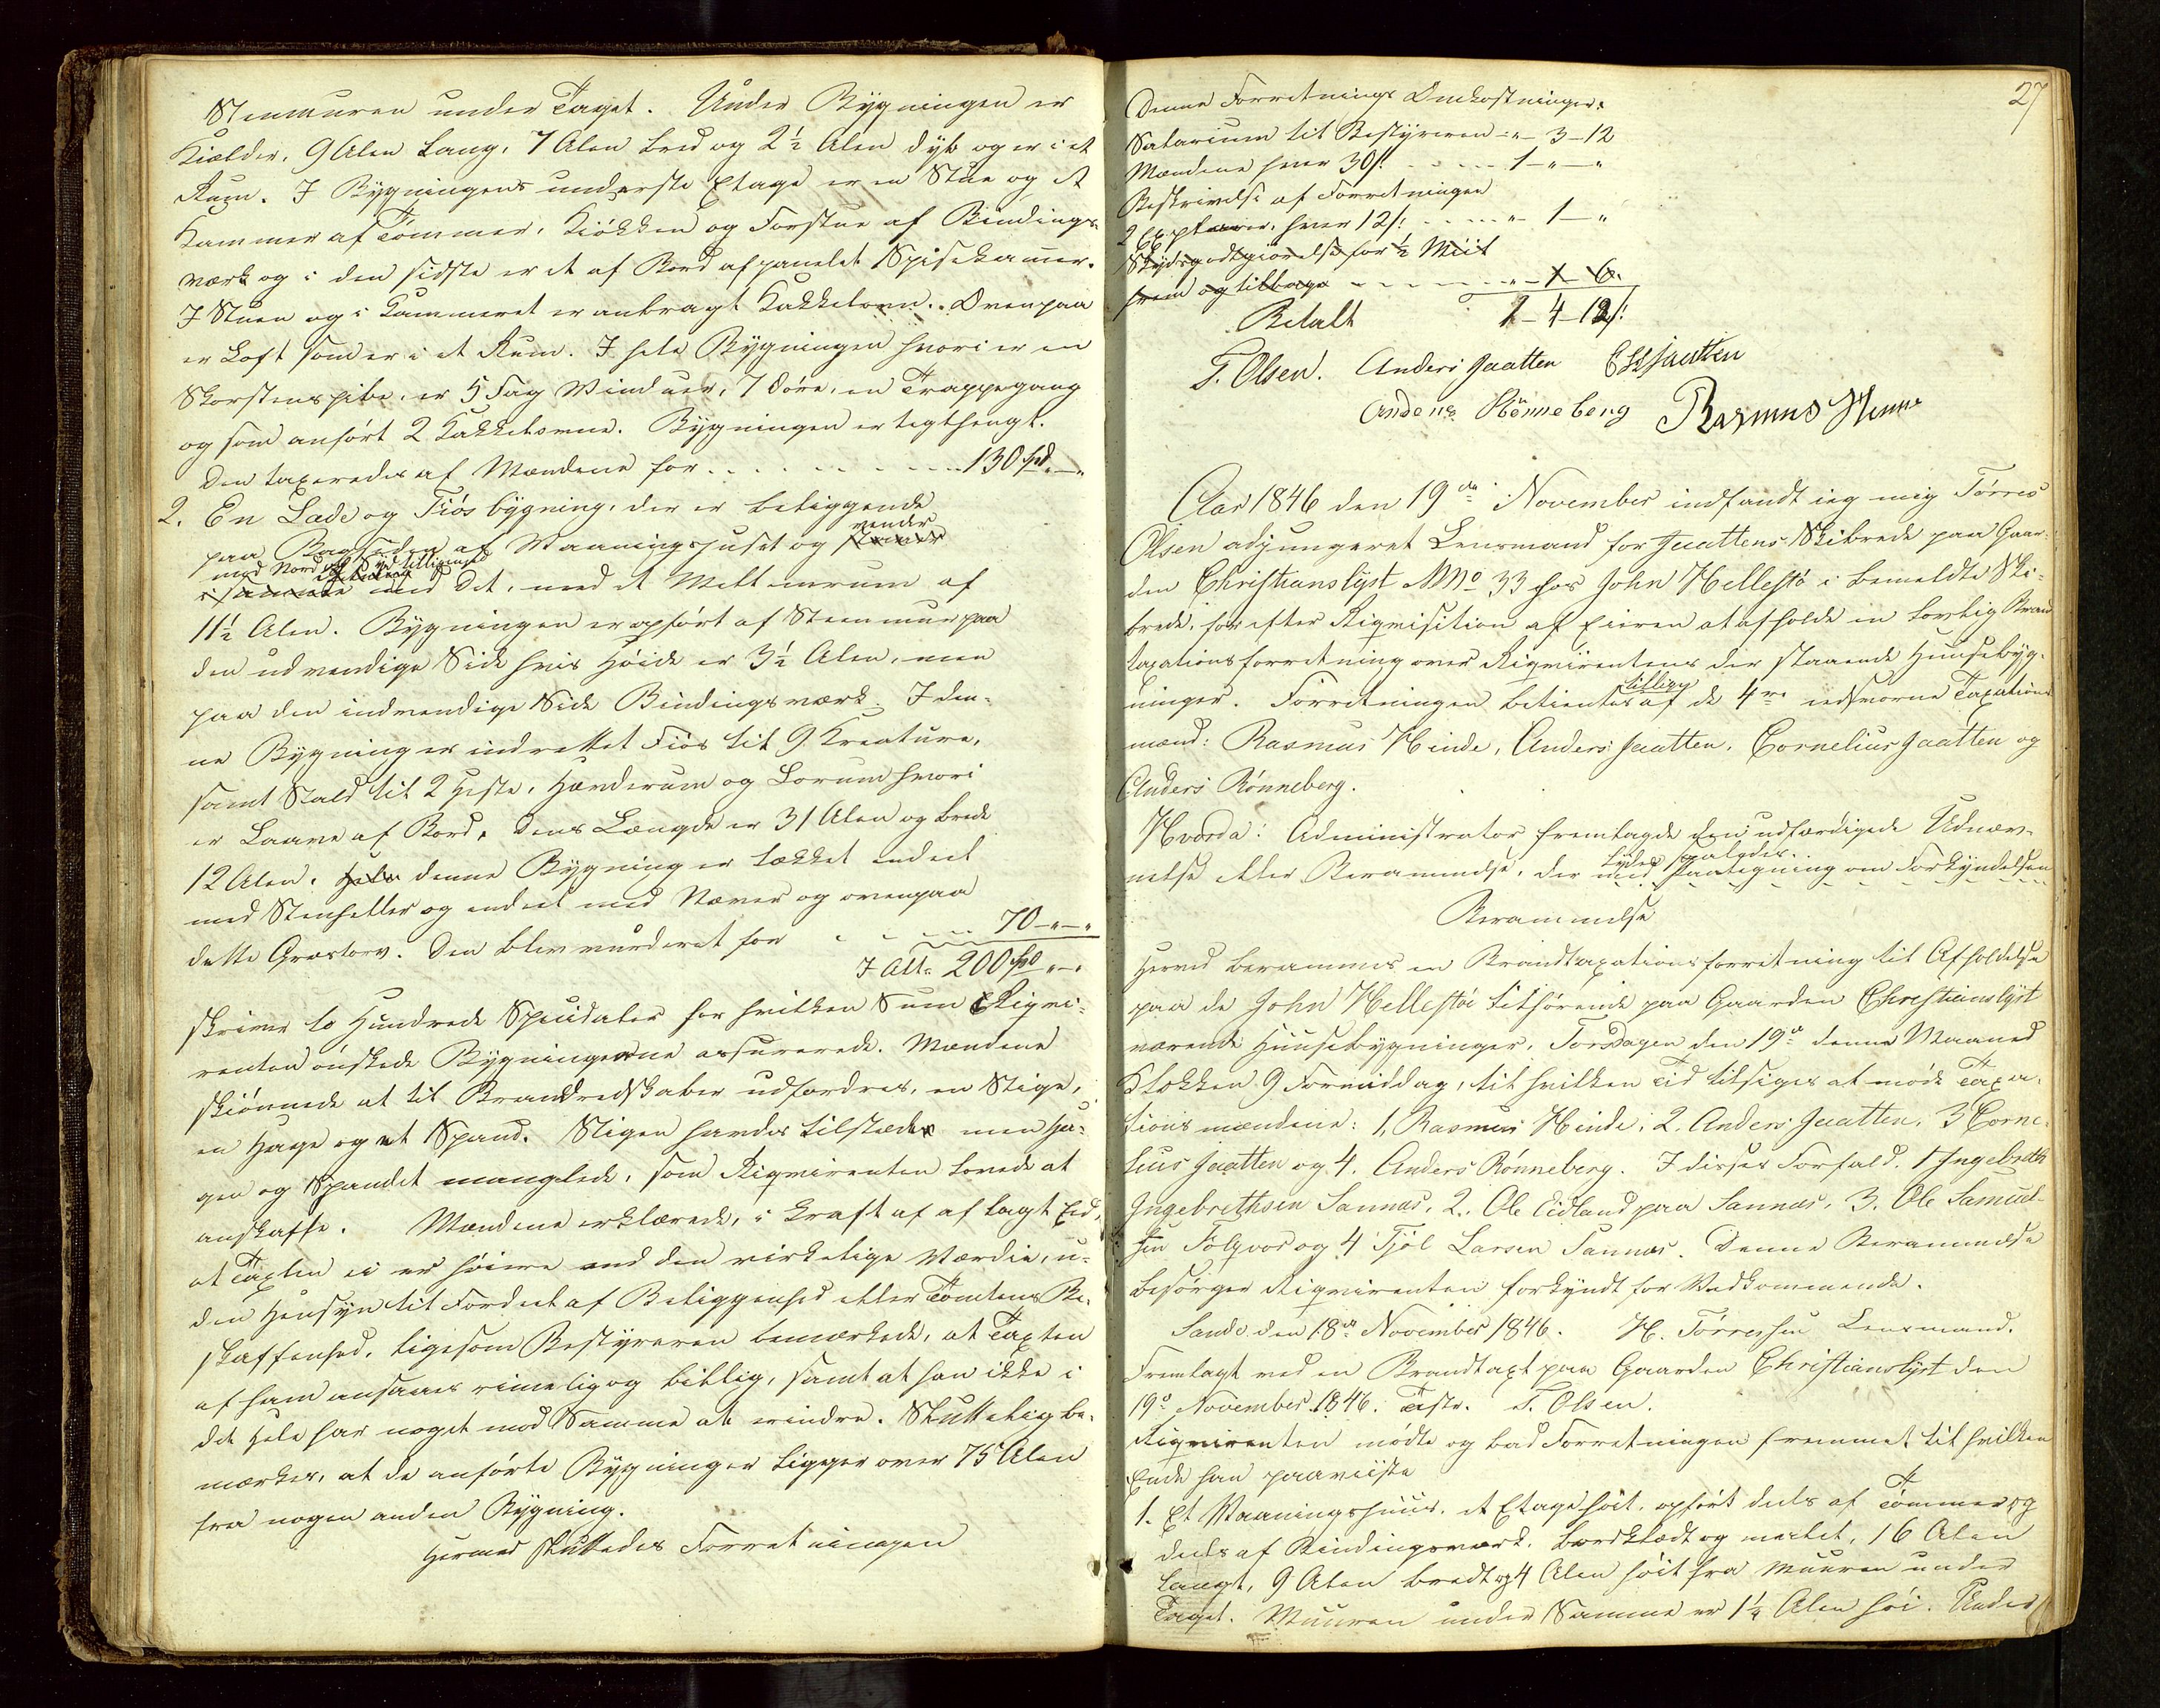 Steenmuren under Taget. Under Bygningen er
Kielder, 9 Alen lang, 7 Alen bred og 2½ Alen dyb og er i et
Rum. I Bygningens underste Etage er en Stue og et
Kammer af Tømmer, Kiøkken og Forstue af Bindings-
værk og i den sidste er et af Bord afpanelet Spisekamer.
I Stuen og i Kammeret er anbragt Kakkelovn. Ovenpaa
er Loft som er i et Rum. I hele Bygningen hvori er en
Skorstenspibe, er 5 Fag Vinduer, 7 Døre, en Trappegang
og som anført 2 Kakkelovne. Bygningen er tegthengt.
Den taxeredes af Mændene for . . . . . . . . 130 Spd. - "
2. En Lade og Fiøsbygning, der er beliggende
paa Bagsiden af Vaaningshuset og staaer vender
med Nord og Syd tilligemed
i samme med det, med et Mellemrum af
11½ Alen. Bygningen er opført af Steenmur paa
den udvendige Side hvis Høide er 3½ Alen, men
paa den indvendige Side Bindingsværk. I den-
ne Bygning er indrettet Fiøs til 9 Kreature,
samt Stald til 2 Heste, Hønderum og Lorum hvori
er Laave af Bord. Dens Længde er 31 Alen og brede
12 Alen. Hele denne Bygning er tækket endeel
med Steenheller og endeel med Næver og ovenpaa
dette Græstorv. Den blev vurderet for . . . . 70 - " - "
I Alt: 200 Spd " - "
skriver to Hundrede Speciedaler for hvilken Sum Reqvi-
renten ønskede Bygningerne assurerede. Mændene
skiønnede at til Brandredskaber udfordres, en Stige,
en Hage og et Spand. Stigen havdes tilstede men Ha-
gen og Spandet manglede, som Reqvirenten lovede at
anskaffe. Mændene erklærede, i Kraft af aflagt Eed,
at Taxten ei er høiere end den virkelige Værdie, u-
den Hensyn til Fordeel af Beliggenhed eller Tomtens Be-
skaffenhed, ligesom Bestyreren bemærkede, at Taxten
af ham ansaaes rimelig og billig, samt at han ikke i
det Hele har noget mod Samme at erindre. Sluttelig be-
mærkes, at de anførte Bygninger ligger over 75 Alen
fra nogen anden Bygning.
Hermed sluttedes Forretningen
27
Denne Forretnings Omkostninger:
Salarium til Bestyreren - " - 3 - 12
Mændene hver 30 s. . . . . . 1 - " - "
Beskrivelse af Forretningen
2 Exptarer, hver 12 s. . . . . " - 1 - "
Skydsgodtgiørelse for ½ Miil
frem og tilbage . . . . . . " - 1 - 6.
Betalt 1 - 4 - 12 s.
T. Olsen. Anders Jaatten C Jaatten
Anders Rönneberg Rasmus Hinne
Aar 1846 den 19de November indfandt ieg mig Tørres
Olsen adjungeret Lensmand for Jaattens Skibrede paa Gaar-
den Christianslyst M No 33 hos John Hellestø i bemeldte Ski-
brede, for efter Reqvisition af Eieren at afholde en lovlig Brand
taxationsforretning over Reqvirentens der staaende Huusebyg-
ninger. Forretningen betientes tillige af de 4re edsvorne Taxations
mænd: Rasmus Hinde, Anders Jaatten, Cornelius Jaatten og
Anders Rønneberg.
Hvorda: Administrator fremlagde den udfærdigede Udnæv-
nelse eller Berammelse, der lyder saaledes
med Paategning om Forkyndelsen
Berammelse
Herved berammes en Brandtaxationsforretning til Afholdelse
paa de John Hellestøe tilhørende paa Gaarden Christianslyst
værende Huusebygninger, Torsdagen den 19de denne Maaned
Klokken 9 Formiddag, til hvilken Tid tilsiges at møde Taxa-
tionsmændene: 1, Rasmus Hinde, 2. Anders Jaatten, 3 Corne-
lius Jaatten og 4. Anders Rønneberg. I disses Forfald, 1 Ingebreth
Ingebrethsen Sannæs, 2. Ole Eidland paa Sannæs, 3. Ole Samuel-
sen Folqvor og 4 Tjøl Larsen Sannæs. Denne Berammelse
besørger Reqvirenten forkyndt for Vedkommende.
Sande den 18de November 1846. H. Tørressen Lensmand.
Fremlagt ved en Brandtaxt paa Gaarden Christianslyst den
19de November 1846. Testr. T. Olsen.
Reqvirenten mødte og bad Forretningen fremmet til hvilken
Ende han paaviiste
1. Et Vaaningshuus, et Etage høit, opført deels af Tømmer og
deels af Bindingsværk, bordklædt og malet, 16 Alen
langt, 9 Alen bredt og 4 Alen høit fra Muuren under
Taget. Muuren under Samme er 1¼ Alen høi. Under